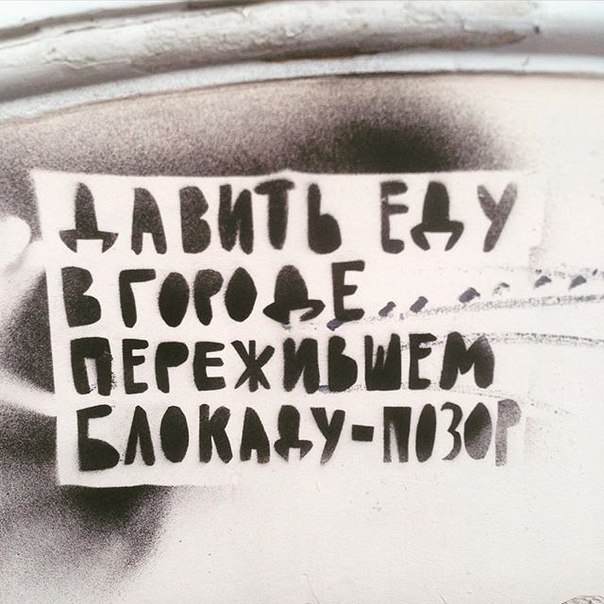 ДАВИТЬ ЕДУ
В ГОРОДЕ...
ПЕРЕЖИВШЕМ
БЛОКАДУ-ПОЗОР